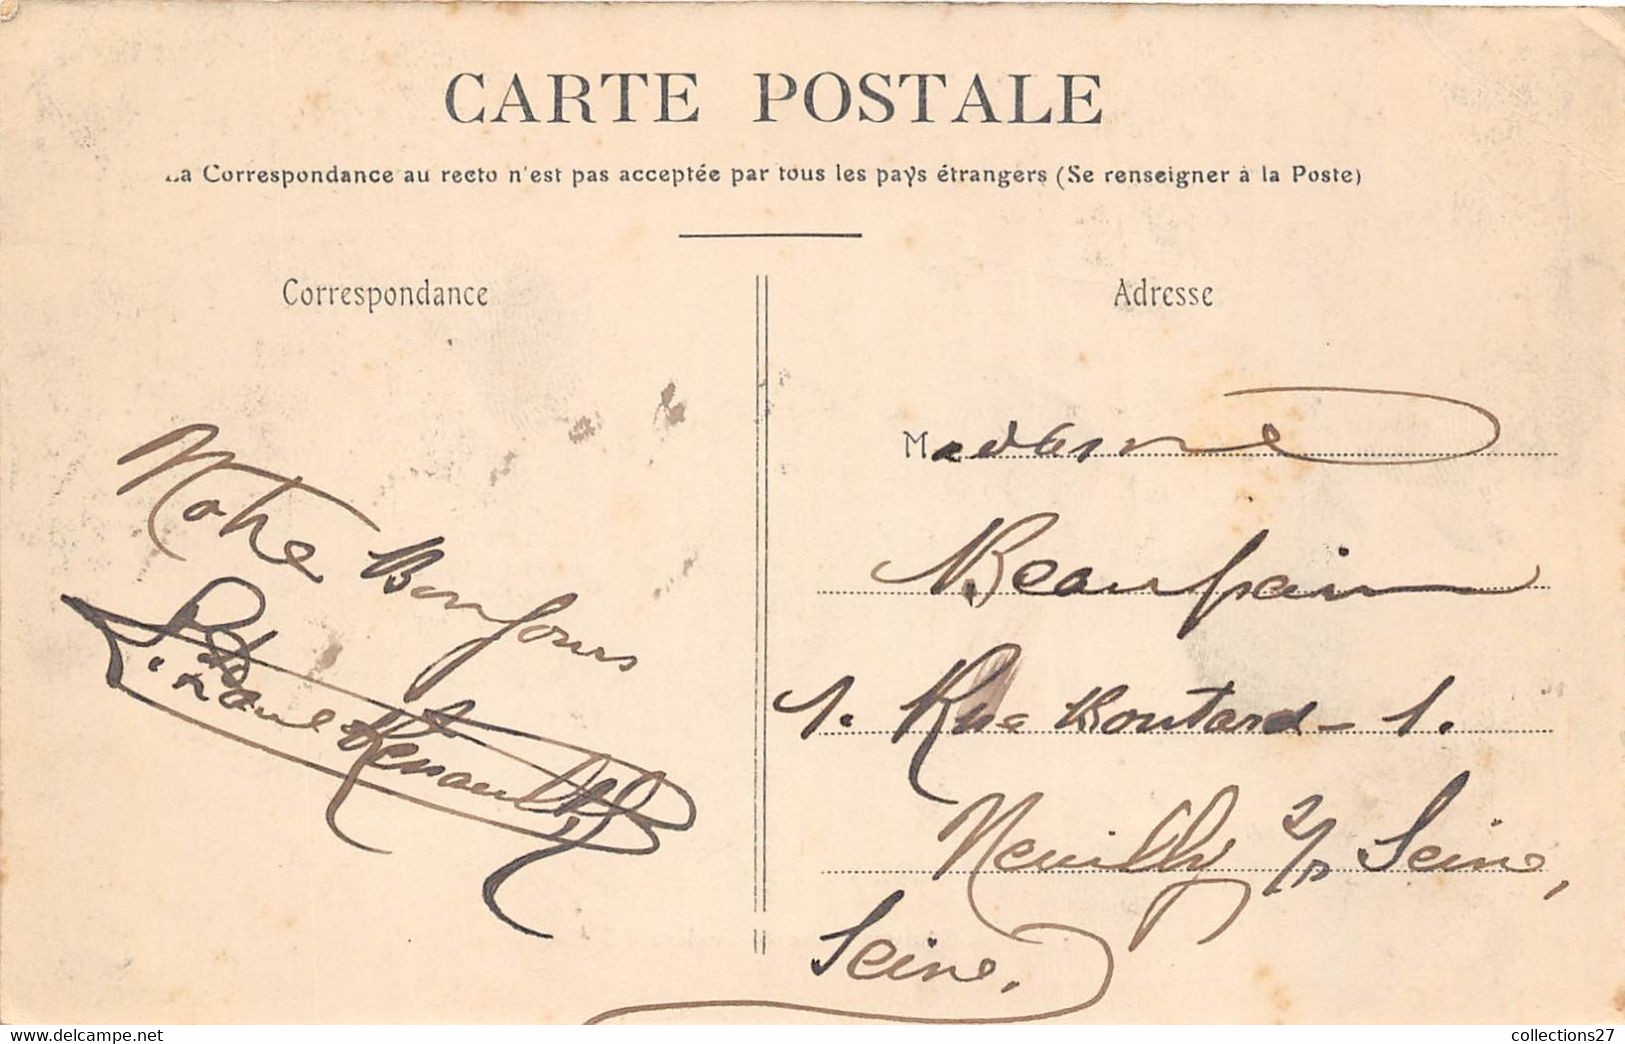 CARTE POSTALE
La Correspondance au recto n'est pas acceptée par tous les pays étrangers (Se renseigner à la Poste)
Correspondance
Notre Bonjour
Renault
Adresse
Madame
Beaupain
1. Rue Boutard - 1.
Neuilly s/ Seine,
Seine.
collections27